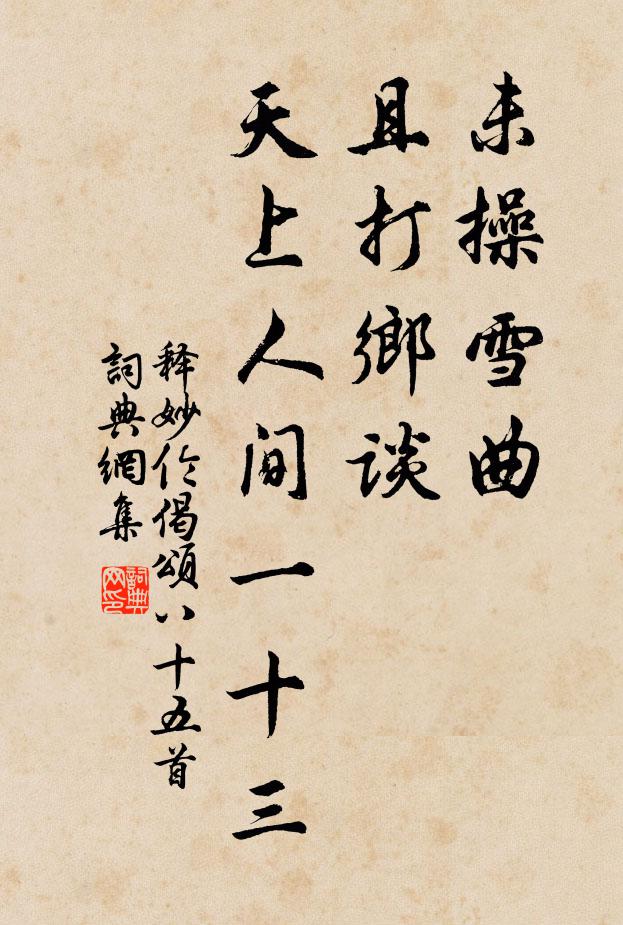 未操雪曲
且打鄉談
天上人间一十三
释妙伦偈頌八十五首
詞典網集
詞典網印